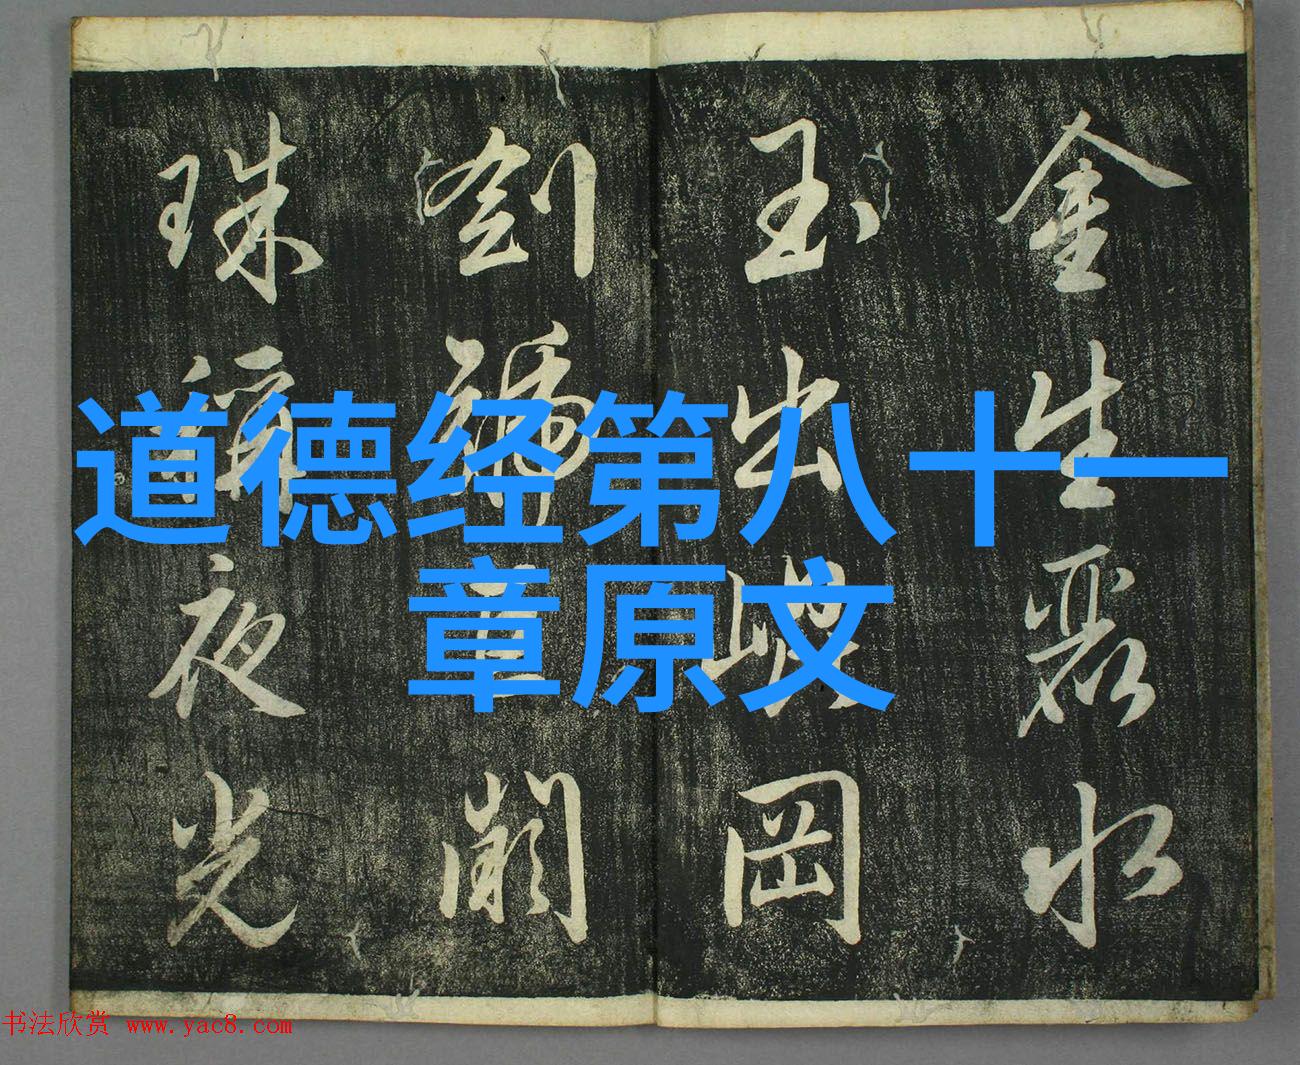 道德经第八十一
章原文
金生麗水
玉出崐岡
劍號闕
珠稱夜光
书法欣赏 www.yac8.com